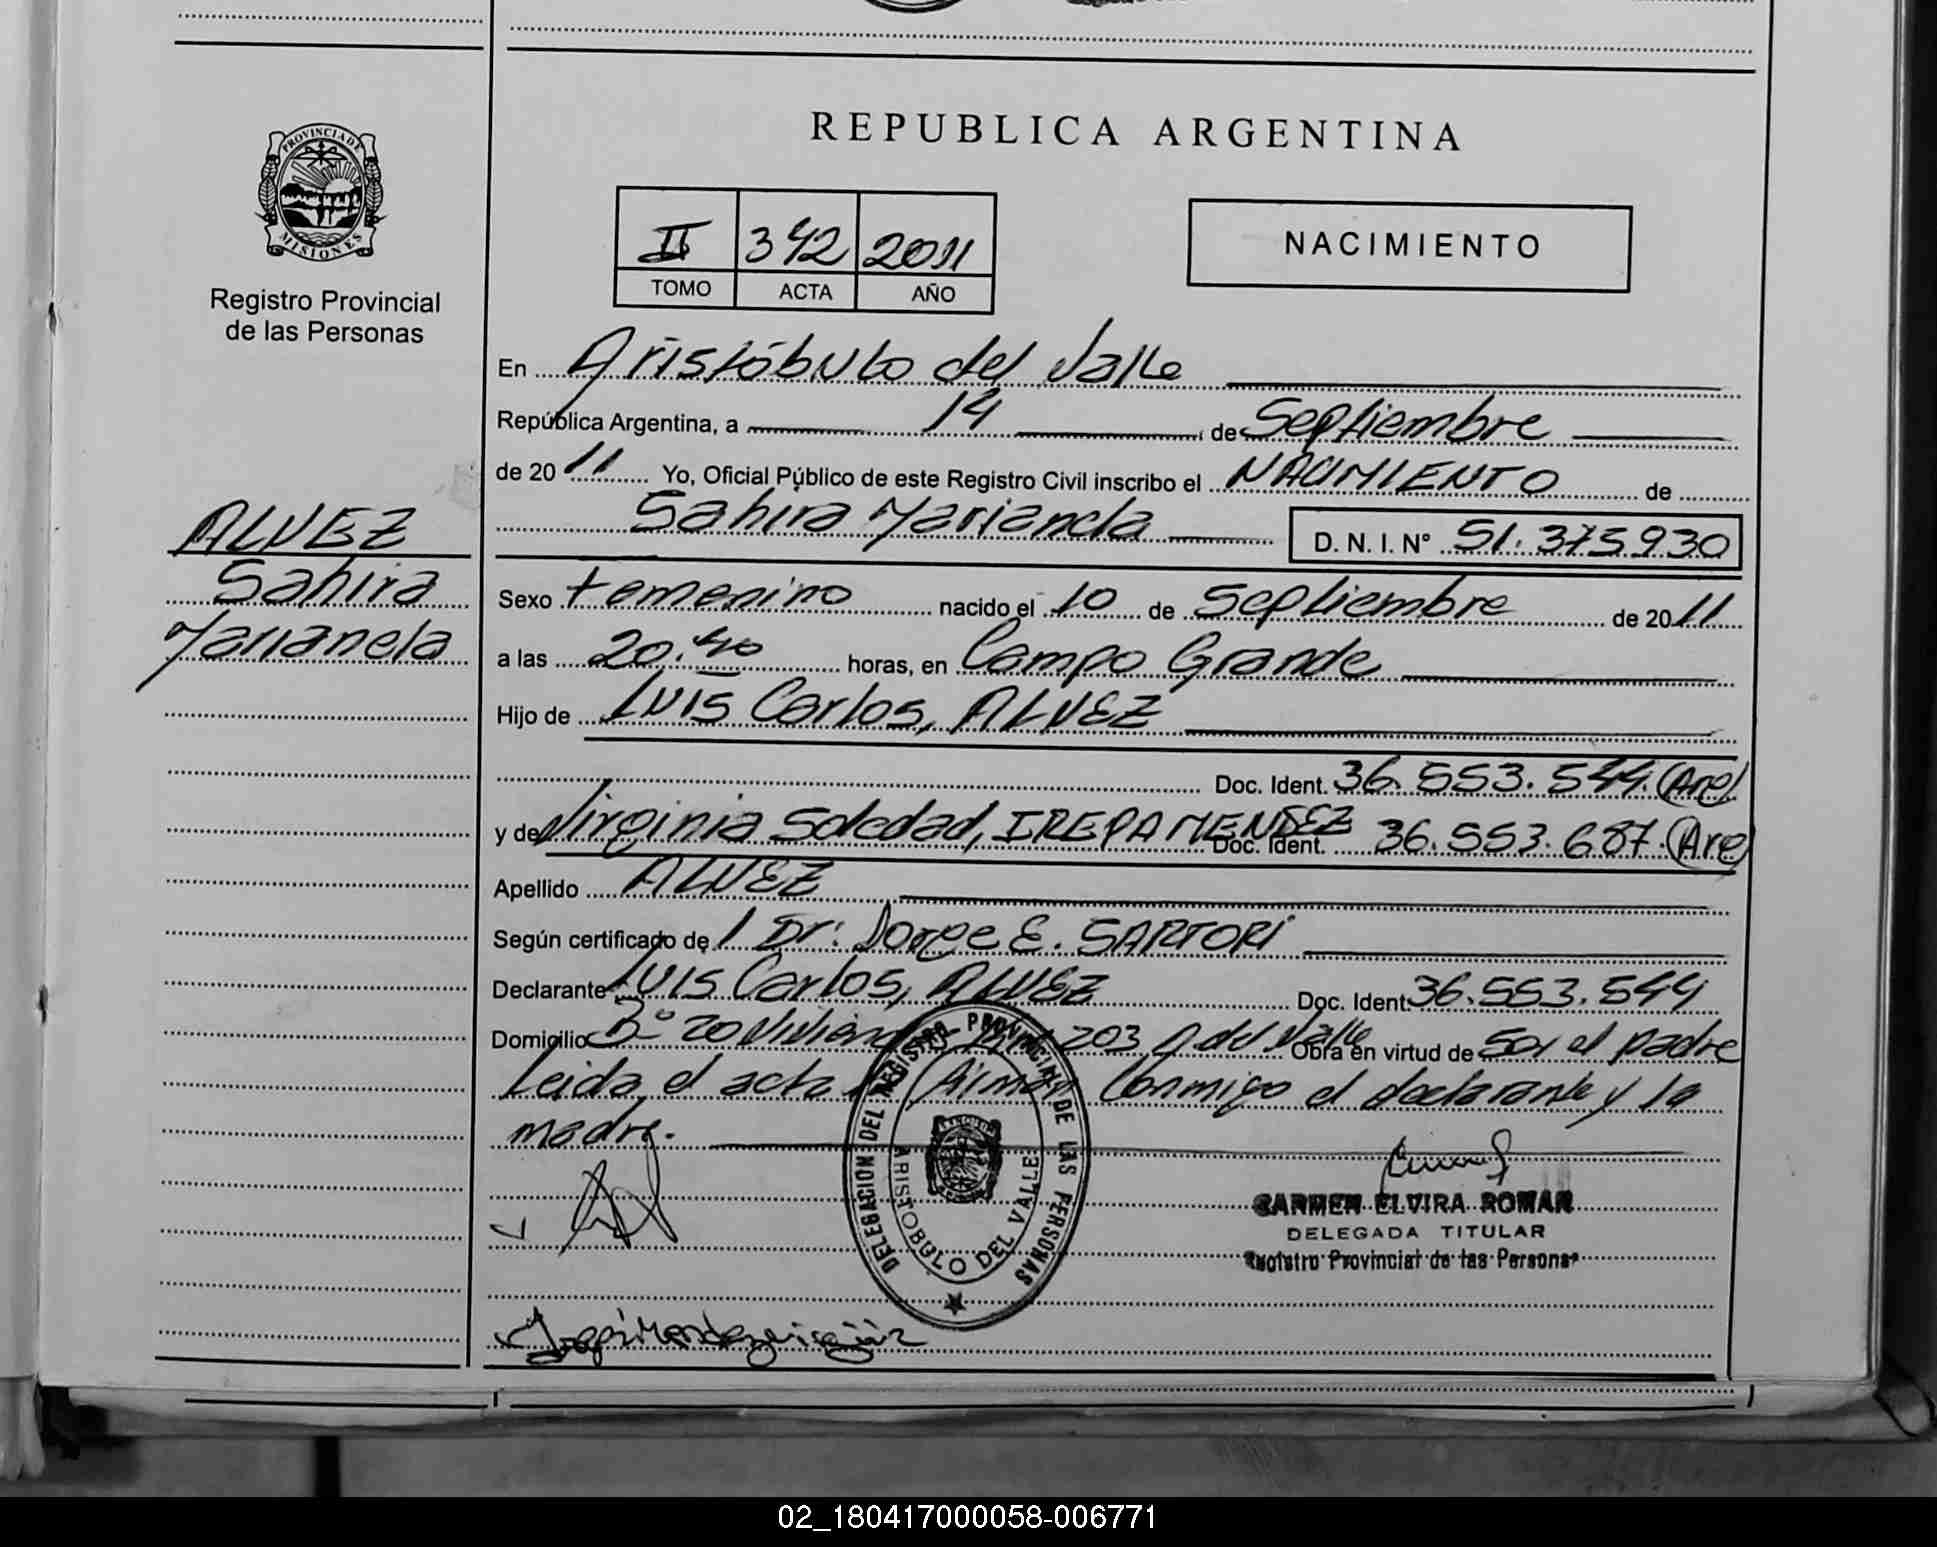 REPUBLICA ARGENTINA
PROVINCIA DE
MISIONES
Registro Provincial
de las Personas
II 342 2011
TOMO ACTA AÑO
NACIMIENTO
En Aristóbulo del Valle
República Argentina, a 14 de Septiembre
de 2011 Yo, Oficial Público de este Registro Civil inscribo el NACIMIENTO de
Sahira Marianela D. N. I. Nº 51.375.930
ALVEZ
Sahira
Marianela
Sexo femenino nacido el 10 de Septiembre de 2011
a las 20.40 horas, en Campo Grande
Hijo de Luis Carlos, ALVEZ
Doc. Ident. 36.553.544. (Arg)
y de Virginia Soledad, IREPA MENDEZ Doc. Ident. 36.553.687. (Arg)
Apellido ALVEZ
Según certificado de 1 Dr: Jorge E. SARTORI
Declarante Luis Carlos, ALVEZ Doc. Ident. 36.553.544
Domicilio Bº 20 203 A. del Valle Obra en virtud de Ser el padre
Leida el acta Firman Conmigo el declarante y la
madre.
DELEGACION DEL REGISTRO PROVINCIAL DE LAS PERSONAS
ARISTOBULO DEL VALLE
CARMEN ELVIRA ROMAN
DELEGADA TITULAR
Registro Provincial de las Personas
02_180417000058-006771